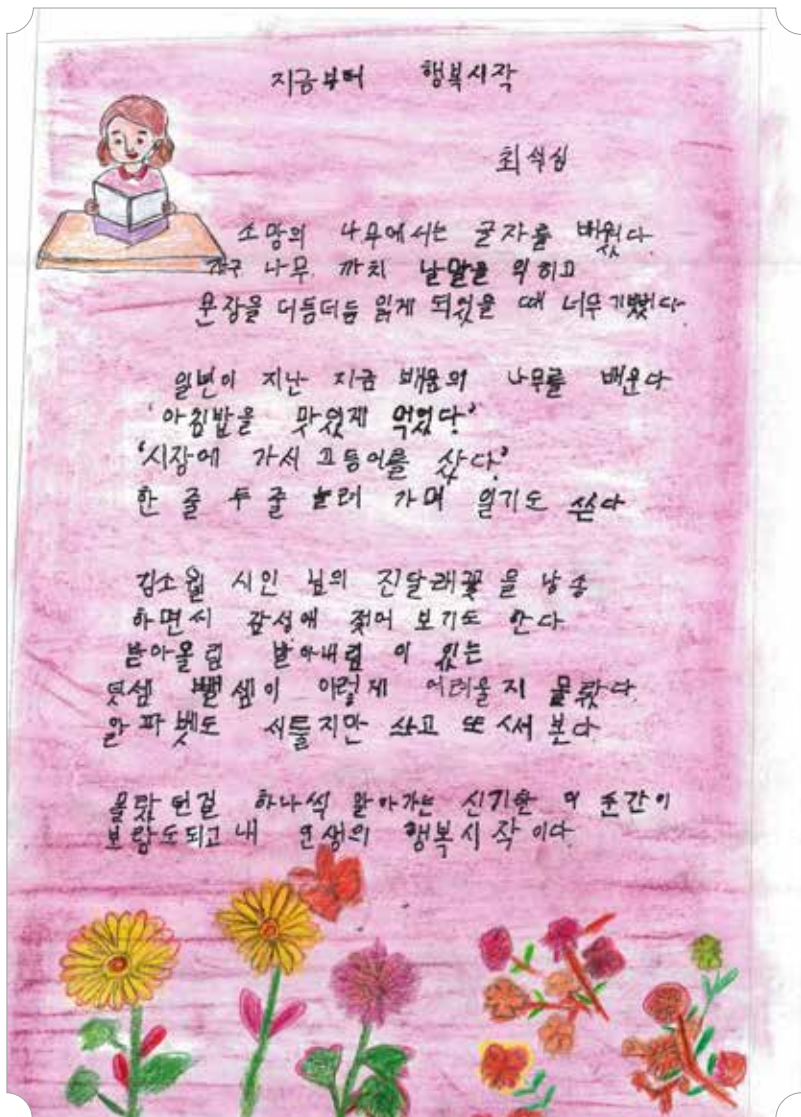 지금부터 행복시작
최석심
소망의 나무에서는 글자를 배웠다
친구 나무 까치 낱말을 익히고
문장을 더듬더듬 읽게 되었을 때 너무 기뻤다
일년이 지난 지금 배움의 나무를 배운다
'아침밥을 맛있게 먹었다'
'시장에 가서 고등어를 샀다'
한 줄 두 줄 늘려 가며 일기도 쓴다
김소월 시인 님의 진달래꽃 을 낭송
하면서 감성에 젖어 보기도 한다
받아올림 받아내림 이 있는
덧셈 뺄셈이 이렇게 어려울지 몰랐다
알파벳도 서툴지만 쓰고 또 써 본다
몰랐던걸 하나씩 알아가는 신기한 이 순간이
보람도되고 내 인생의 행복시작 이다